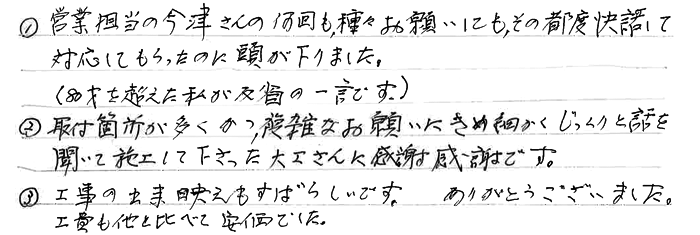 ① 営業担当の今津さんの何回も、種々お願いにも、その都度快諾して
対応してもらったのに頭が下りました。
(80才を超えた私が反省の一言です。)
② 取付箇所が多くかつ、煩雑なお願いにきめ細かくじっくりと話を
聞いて施工して下さった大工さんに感謝感謝です。
③ 工事の出来映えもすばらしいです。 ありがとうございました。
工費も他と比べて安価でした。